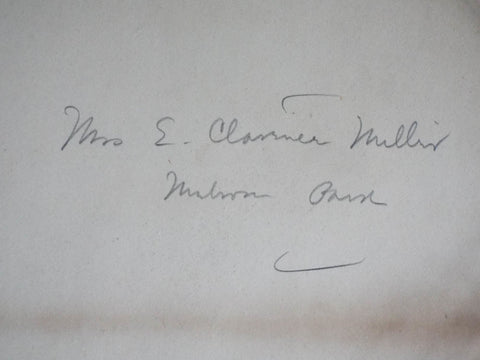 Mrs E. Clarence Miller
Melrose Park